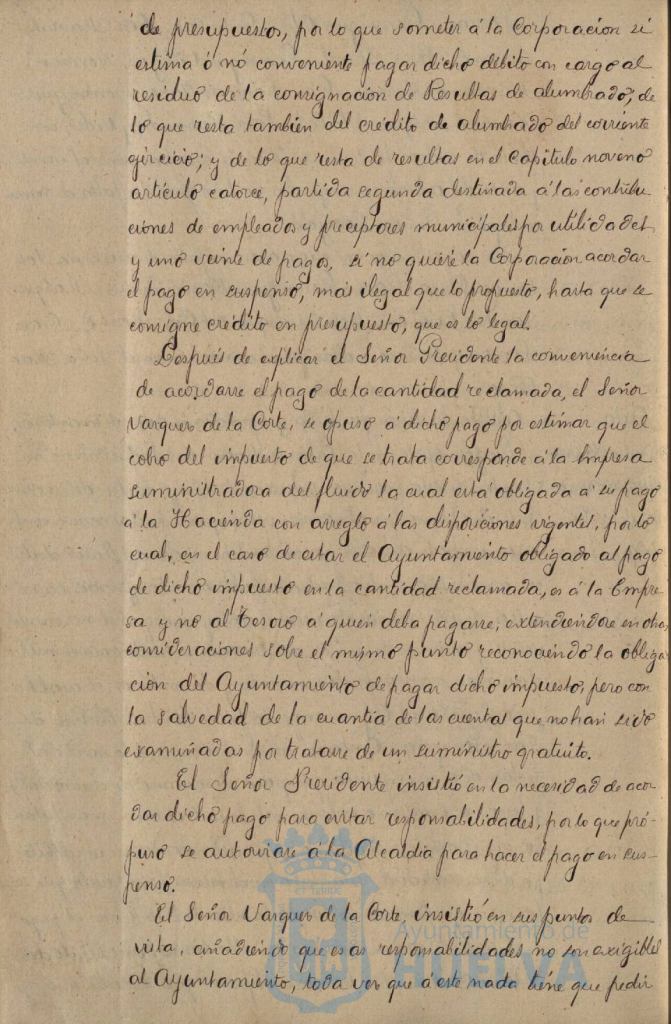 de presupuestos, por lo que someter á la Corporación si
estima ó nó conveniente pagar dicho débito con cargo al
residuo de la consignación de Resultas de alumbrado, de
lo que resta también del crédito de alumbado del corriente
ejercicio; y de lo que resta de resultas en el Capitulo noveno
artículo catorce, partida segunda destinada á las contribu
ciones de empleados y preceptores municipales por utilidades
y uno veinte de pagos, si no quiere la Corporación acordar
el pago en suspenso, más ilegal que lo propuesto, hasta que se
consigne crédito en presupuesto, que es lo legal.
Después de explicar el Señor Presidente la conveniencia
de acordarse el pago de la cantidad reclamada, el Señor
Vazquez de la Corte, se opuso á dicho pago por estimar que el
cobro del impuesto de que se trata corresponde á la Empresa
suministradora del fluido la cual está obligada á su pago
á la Hacienda con arreglo á las disposiciones vigentes, por lo
cual, en el caso de estar el Ayuntamiento obligado al pago
de dicho impuesto en la cantidad reclamada, es á la Empre-
sa y no al Tesoro á quien deba pagarse, extendiendose en otras
consideraciones sobre el mismo punto reconociendo la obliga-
ción del Ayuntamiento de pagar dicho impuesto, pero con
la salvedad de la cuantía de las cuentas que no han sido
examinadas por tratarse de un suministro gratuito.
El Señor Presidente insistió en la necesidad de acor-
dar dicho pago para evitar responsabilidades, por lo que pro-
puso se autorizase á la Alcaldía para hacer el pago en sus-
penso.
El Señor Vazquez de la Corte, insistió en sus puntos de
vista, añadiendo que esas responsabilidades no son exigibles
al Ayuntamiento, toda vez que á éste nada tiene que pedir
Ayuntamiento de
HUELVA